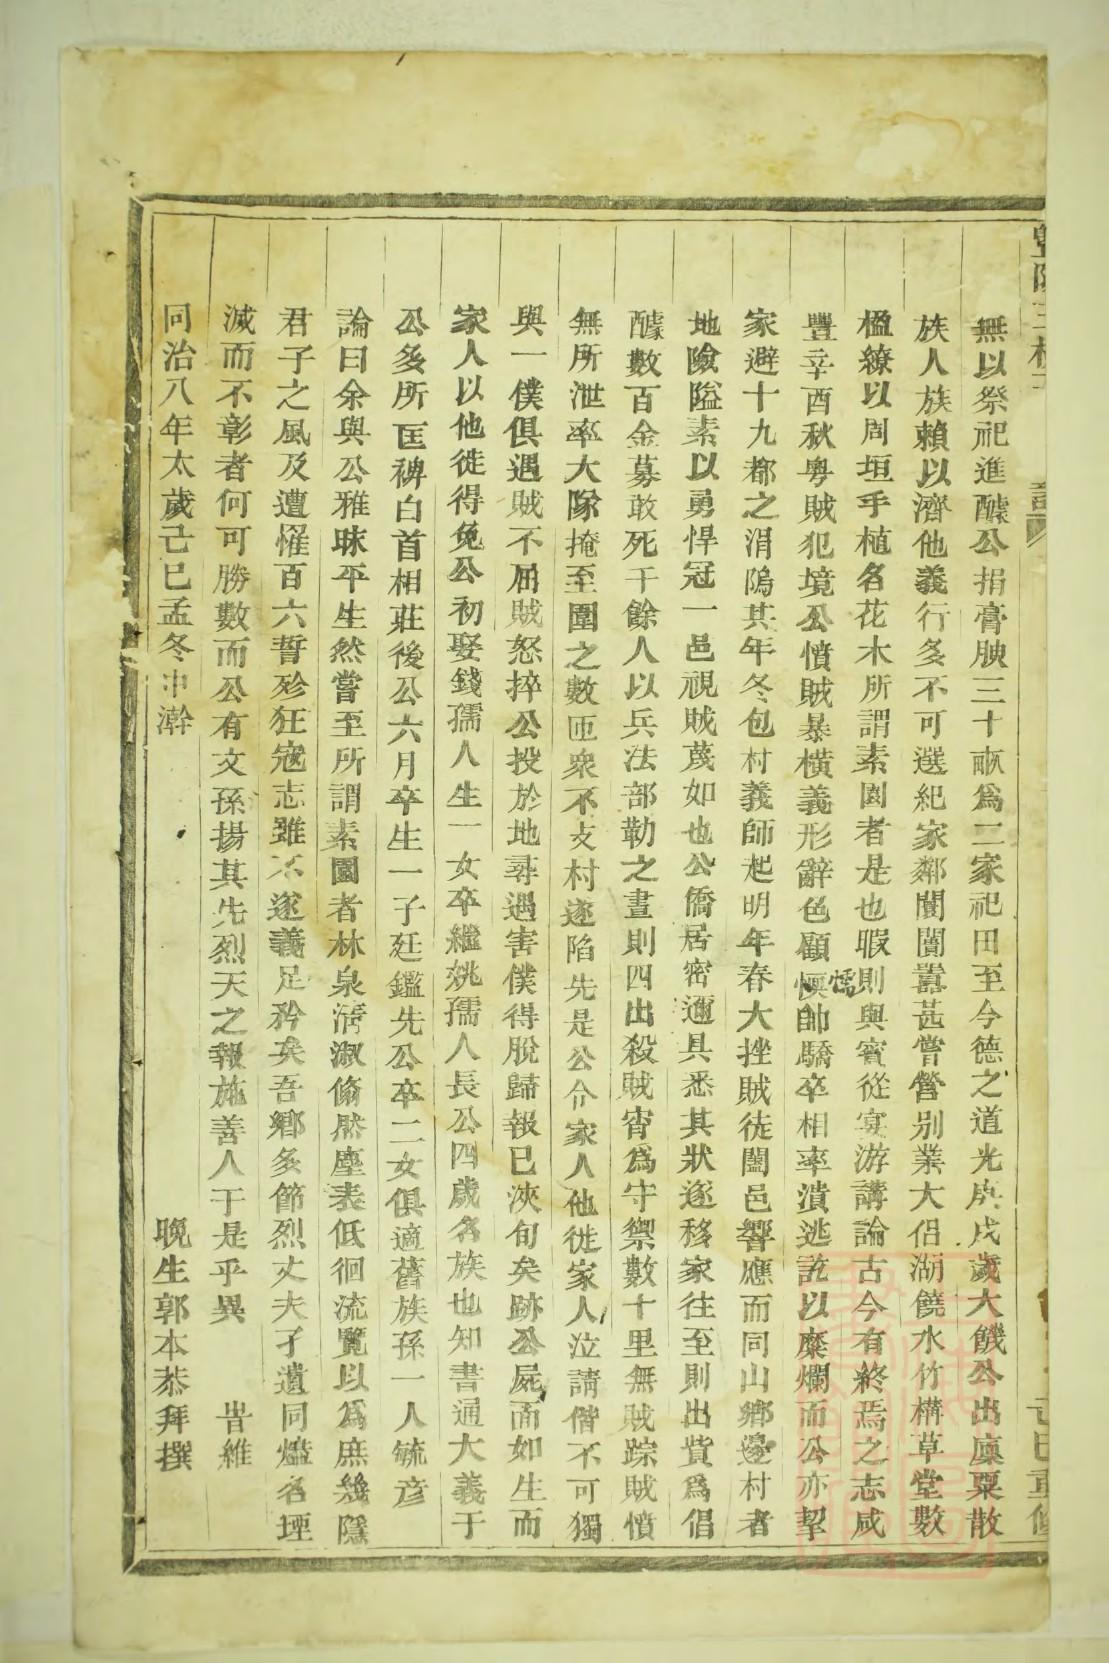 無以祭祀進醵公捐膏腴三十畝爲二家祀田至今德之道光庚戌歲大饑公出廩粟散
族人族賴以濟他義行多不可選紀家鄰闤闠囂甚嘗營别業大侶湖饒水竹構草堂數
楹繚以周垣手植名花木所謂素園者是也暇則與賓從宴游講論古今有終焉之志咸
豐辛酉秋粤賊犯境公憤賊暴橫義形辭色顧慔愹帥驕卒相率潰逃訖以糜爛而公亦挈
家避十九都之涓隖其年冬包村義師起明年春大挫賊徒闔邑響應而同山鄉邊村者
地險隘素以勇悍冠一邑視賊蔑如也公僑居密邇具悉其狀遂移家往至則出貲爲倡
醵數百金募敢死千餘人以兵法部勒之晝則四出殺賊宵爲守禦數十里無賊踪賊憤
無所泄率大隊掩至圍之數匝衆不支村遂陷先是公令家人他徙家人泣請偕不可獨
與一僕俱遇賊不屈賊怒捽公投於地尋遇害僕得脫歸報已浹旬矣跡公屍面如生而
家人以他徙得免公初娶錢孺人生一女卒繼姚孺人長公四歲名族也知書通大義于
公多所匡裨白首相莊後公六月卒生一子廷鑑先公卒二女俱適舊族孫一人毓彦
論曰余與公雅昧平生然嘗至所謂素園者林泉淸淑翛然塵表低徊流覽以爲庶幾隱
君子之風及遭罹百六誓殄狂寇志雖不遂義足矜矣吾鄉多節烈丈夫孑遺同燼名堙
滅而不彰者何可勝數而公有文孫揚其先烈天之報施善人于是乎異 旹維
同治八年太歲己巳孟冬中澣 晚生郭本恭拜撰